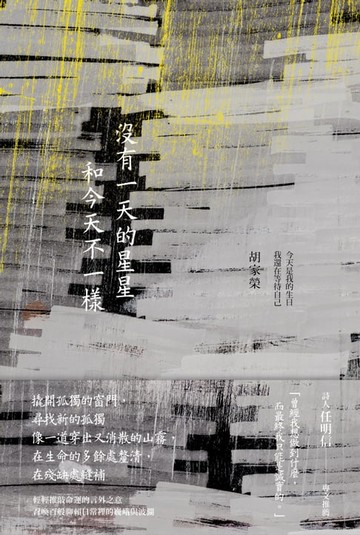 沒有一天的星星
和今天不一樣
今天是我的生日
我還在等待自己
胡家榮
撬開孤獨的窗門，
尋找新的孤獨
像一道穿出又消散的山霧，
在生命的多餘處釐清，
在殘缺處縫補
輕輕推敲命運的言外之意
召喚百般聊賴日常裡的
詩人 任明信